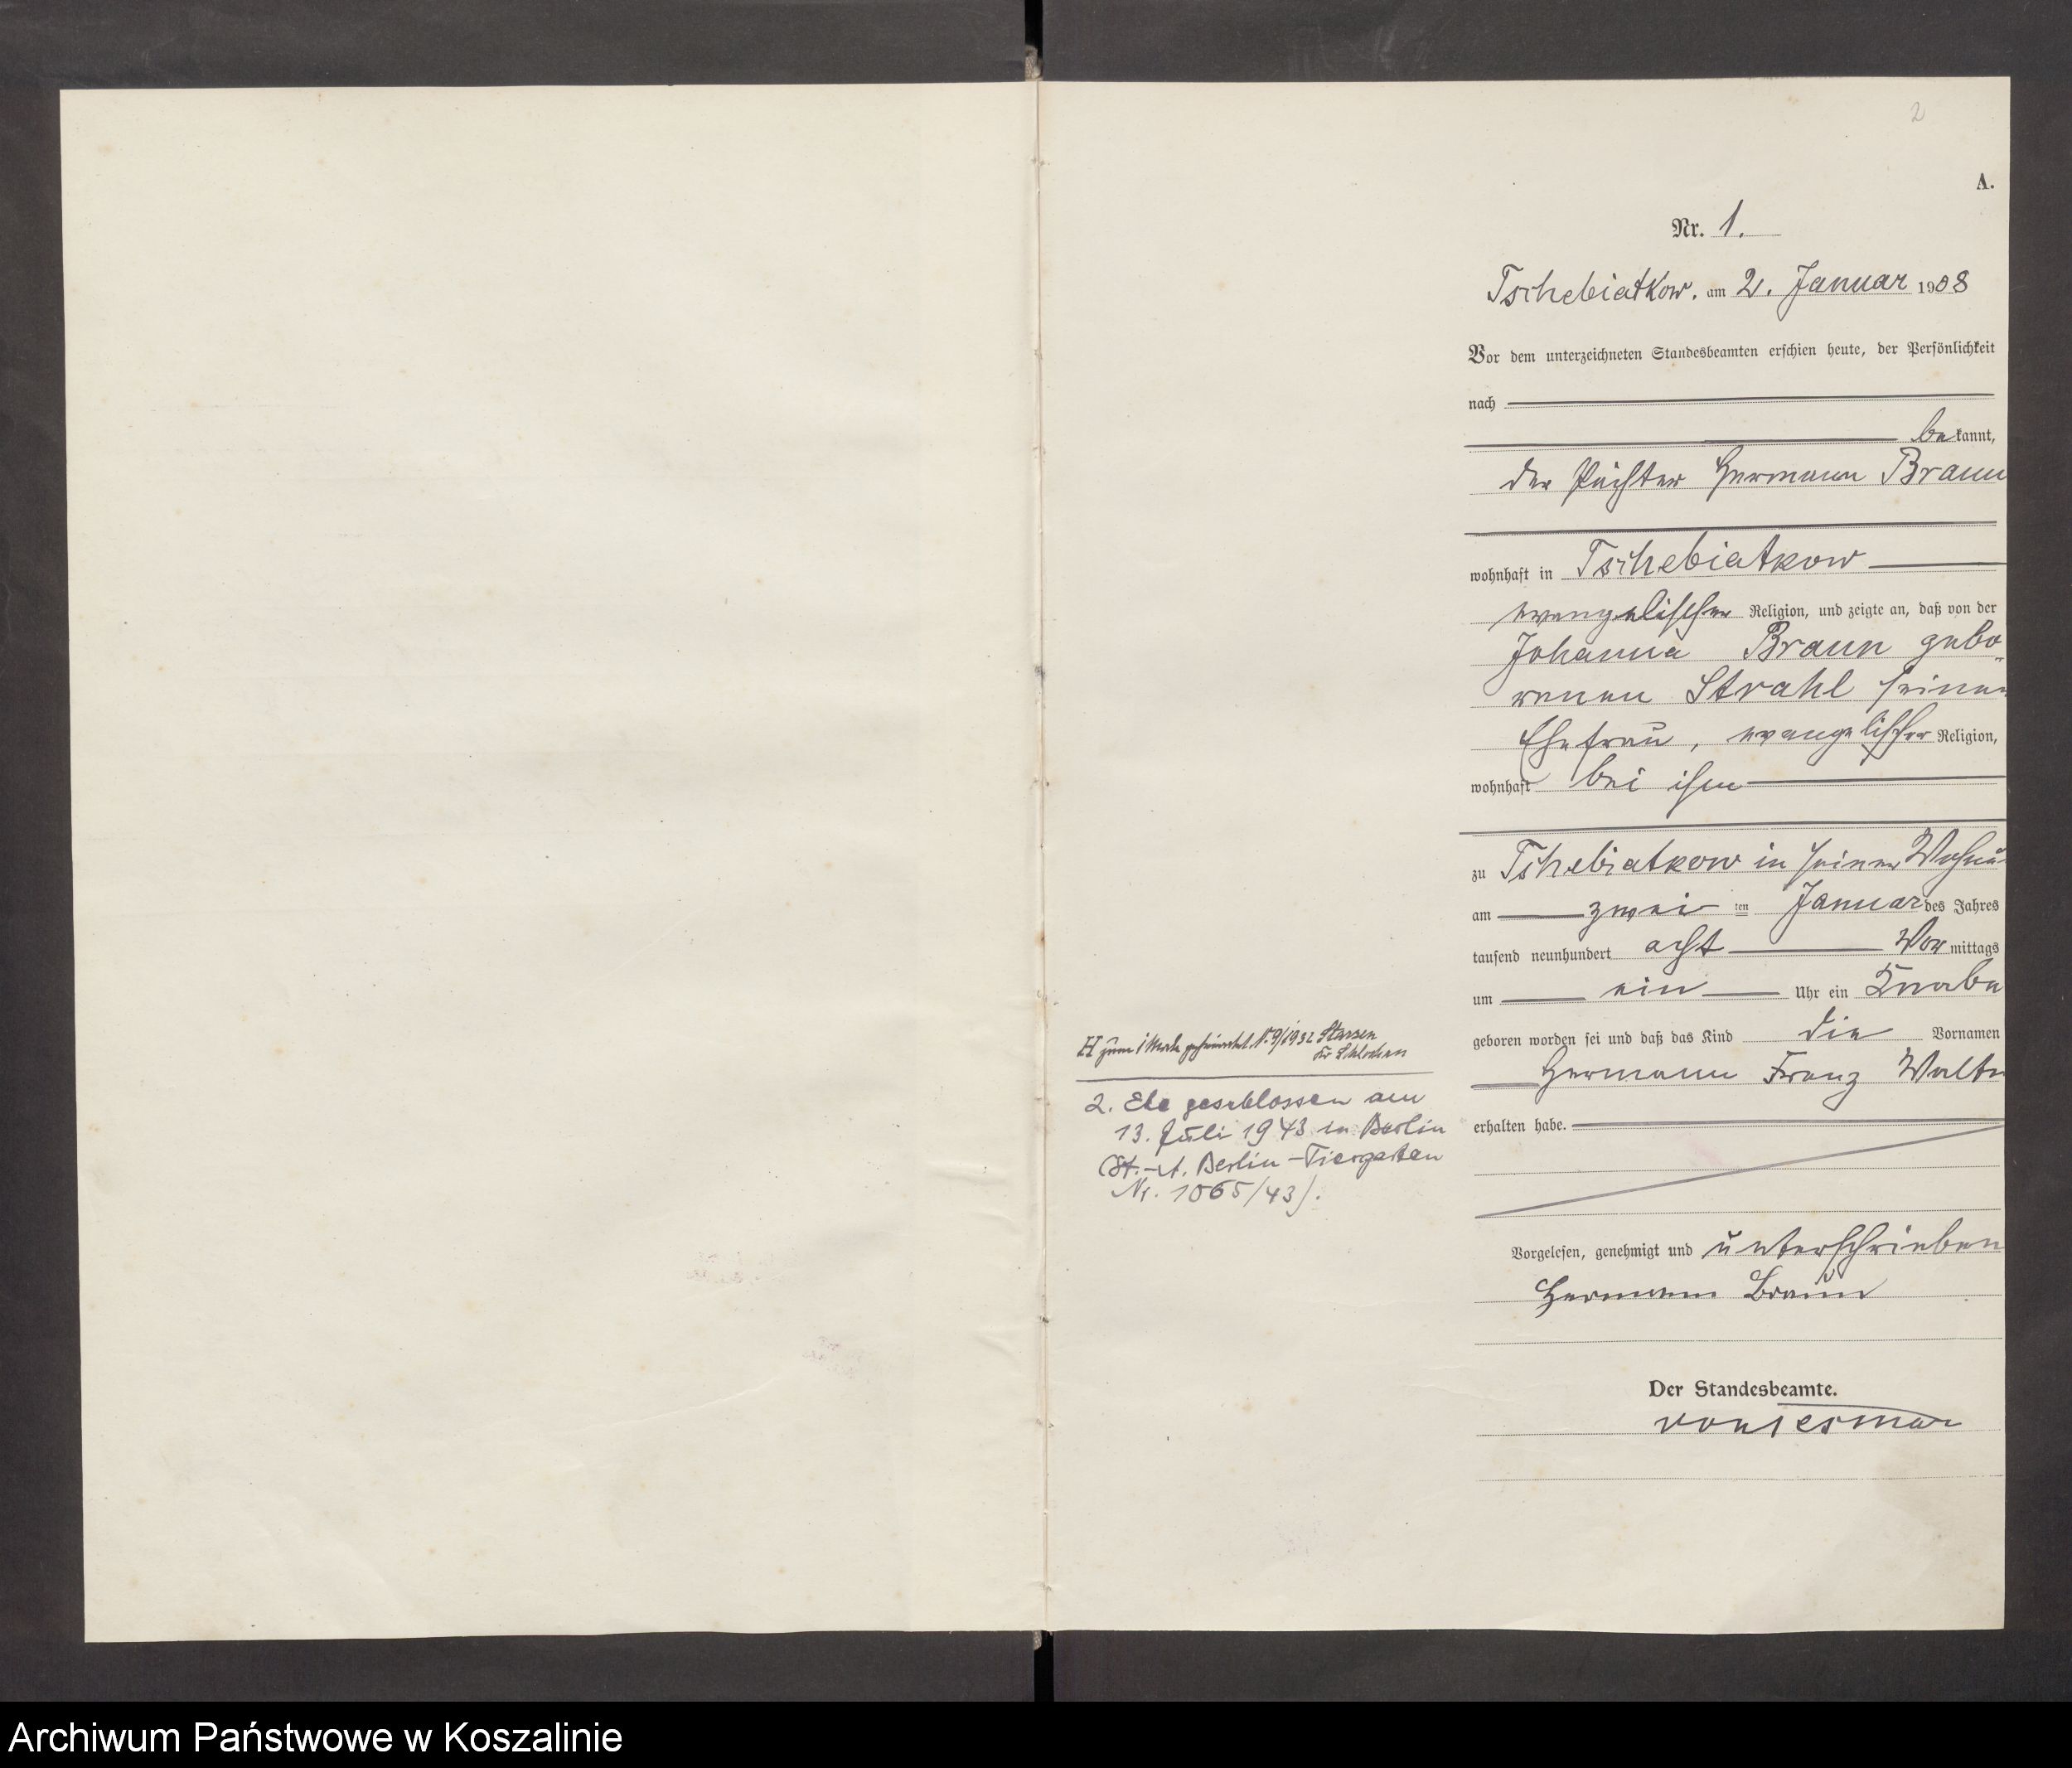 2
A.
Nr. 1.
Tschebiatkow. am 2. Januar 1908
Vor dem unterzeichneten Standesbeamten erschien heute, der Persönlichkeit
nach
bekannt,
der Pächter Hermann Braun
wohnhaft in Tschebiatkow
evangelischer Religion, und zeigte an, daß von der
Johanna Braun gebo-
renen Strahl seiner
Ehefrau, evangelischer Religion,
wohnhaft bei ihm
zu Tschebiatkow in seiner
am zwei ten Januar des Jahres
tausend neunhundert acht Vormittags
um ein Uhr ein Knabe
geboren worden sei und daß das Kind die Vornamen
Hermann Franz Walter
erhalten habe.
Vorgelesen, genehmigt und unterschrieben
Hermann Braun
Der Standesbeamte.
H zum 1 N. 9/1932
2. Ehe geschlossen am
13. Juli 1943 in Berlin
(St.-A. Berlin-Tiergarten
Nr. 1065/43).
Archiwum Państwowe w Koszalinie